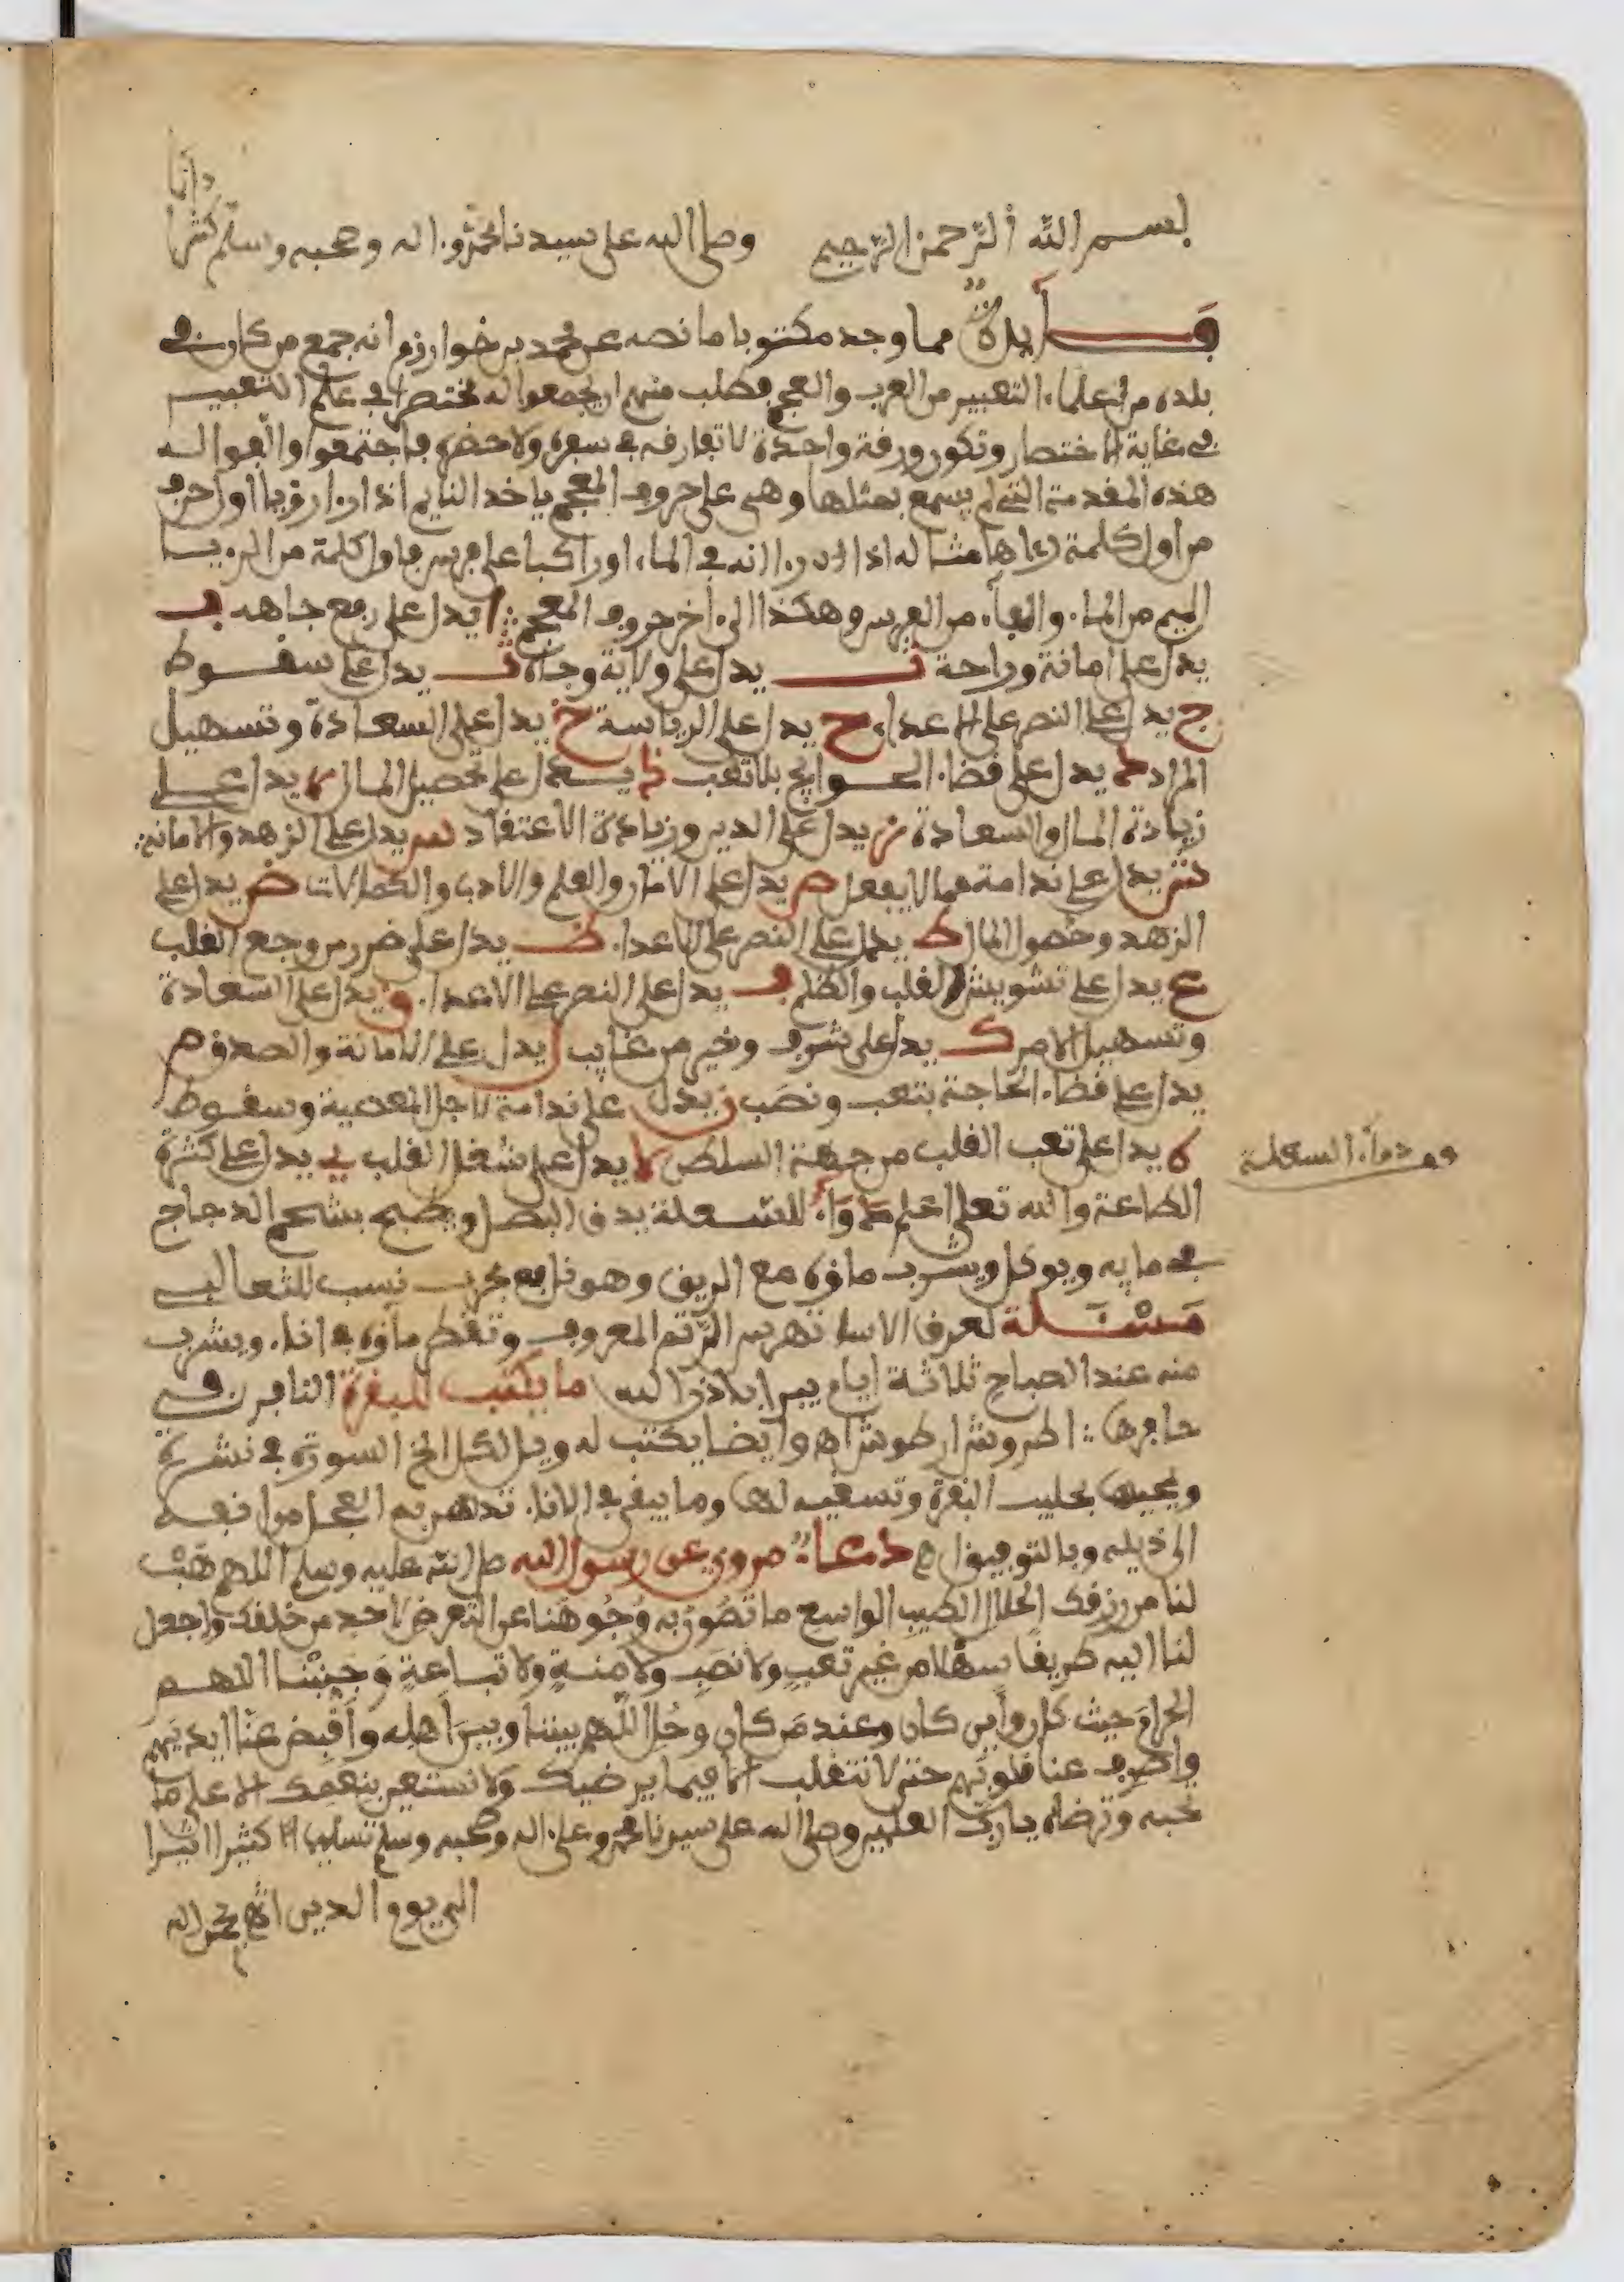 بسم الله الرحمن الرحيم وصلى الله على سيدنا محمد وءاله وصحبه وسلم كثيرا
دائما
فايدة مما وجد مكتوبا ما نصه عن محمد بن خوارزم انه جمع من كان في
بلده من علماء التعبير من العرب والعجم فطلب منهم ان يجمعوا له مختصرا في علم التعبير
في غاية الاختصار وتكون ورقة واحدة لا تفارقه في سفره ولا حضره فاجتمعوا والفوا له
هذه المقدمة التي لم يسمع بمثلها وهي على حروف المعجم ياخذ النايم اذا رءا رؤيا اول حرف
من اول كلمة رءاها مثاله اذا رءا انه في الماء او راكبا على فرس فاول كلمة من الرءيـا
الميم من الماء والفاء من الفرس وهكذا الى ءاخر حروف المعجم ا يدل على رفع جاهه ب
يدل على امانة وراحة ت يدل على ولاية وجاه ث يدل على سقوط
ج يدل على النصر على الاعداء ح يدل على الرياسة خ يدل على السعادة وتسهيل
المراد د يدل على قضاء الحوايج بلا تعب ذ يدل على تحصيل المال ر يدل على
زيادة المال والسعادة ز يدل على الدين وزيادة الاعتقاد س يدل على الزهد والامانة
ش يدل على ندامة مما لا يفعل ص يدل على الاثار والعلم والادب والكمالات ض يدل على
الزهد وحصول المال ط يدل على النصر على الاعداء ظ يدل على ضرر من وجع القلب
ع يدل على تشويش القلب والظلم ف يدل على النصر على الاعداء ق يدل على السعادة
وتسهيل الامر ك يدل على شوق وخير من غايب ل يدل على الامانة والصدق م
يدل على قضاء الحاجة بتعب ونصب ن يدل على ندامة لاجل المعصية وسقوط
ه يدل على تعب القلب من جهة السلطن لا يدل على شغل القلب ي يدل على كثرة
قف دواء السعلة
الطاعة والله تعلى اعلم دواء للسعلة يدق البصل ويطبخ بشحم الدجاج
في مايه ويوكل ويشرب ماؤه مع الريق وهو نافع مجرب نسب للثعالبي
مسئلة لعرق الاسا تهرس الرتم المعروف وتقطر ماؤه في اناء ويشرب
منه عند الصباح ثلاثة ايام يبرا باذن الله ما يكتب للبقرة النافر في
حافرها اطروش ارطوش اه وايضا يكتب له ويل لكل الخ السورة في
ويمحيها بحليب البقرة وتسقيه لها وما يبقى في الاناء تدهن به العجل من انفه
الى ذيله وبالله التوفيق اه دعاء مروي عن رسول الله صلى الله عليه وسلم اللهم هب
لنا من رزقك الحلال الطيب الواسع ما تصون به وجوهنا عن التعرض لاحد من خلقك واجعل
لنا اليه طريقا سهلا من غير تعب ولا نصب ولا منة ولا تباعة وجنبنا اللهم
الحرام حيث كان واين كان وعند من كان وحل اللهم بيننا وبين اهله واقبض عنا ايديهم
واصرف عنا قلوبهم حتى لا نتقلب الا فيما يرضيك ولا نستعين بنعمتك الا على ما
تحبه وترضاه يا رب العلمين وصلى الله على سيدنا محمد وعلى ءاله وصحبه وسلم تسليما كثيرا اثيرا
الى يوم الدين